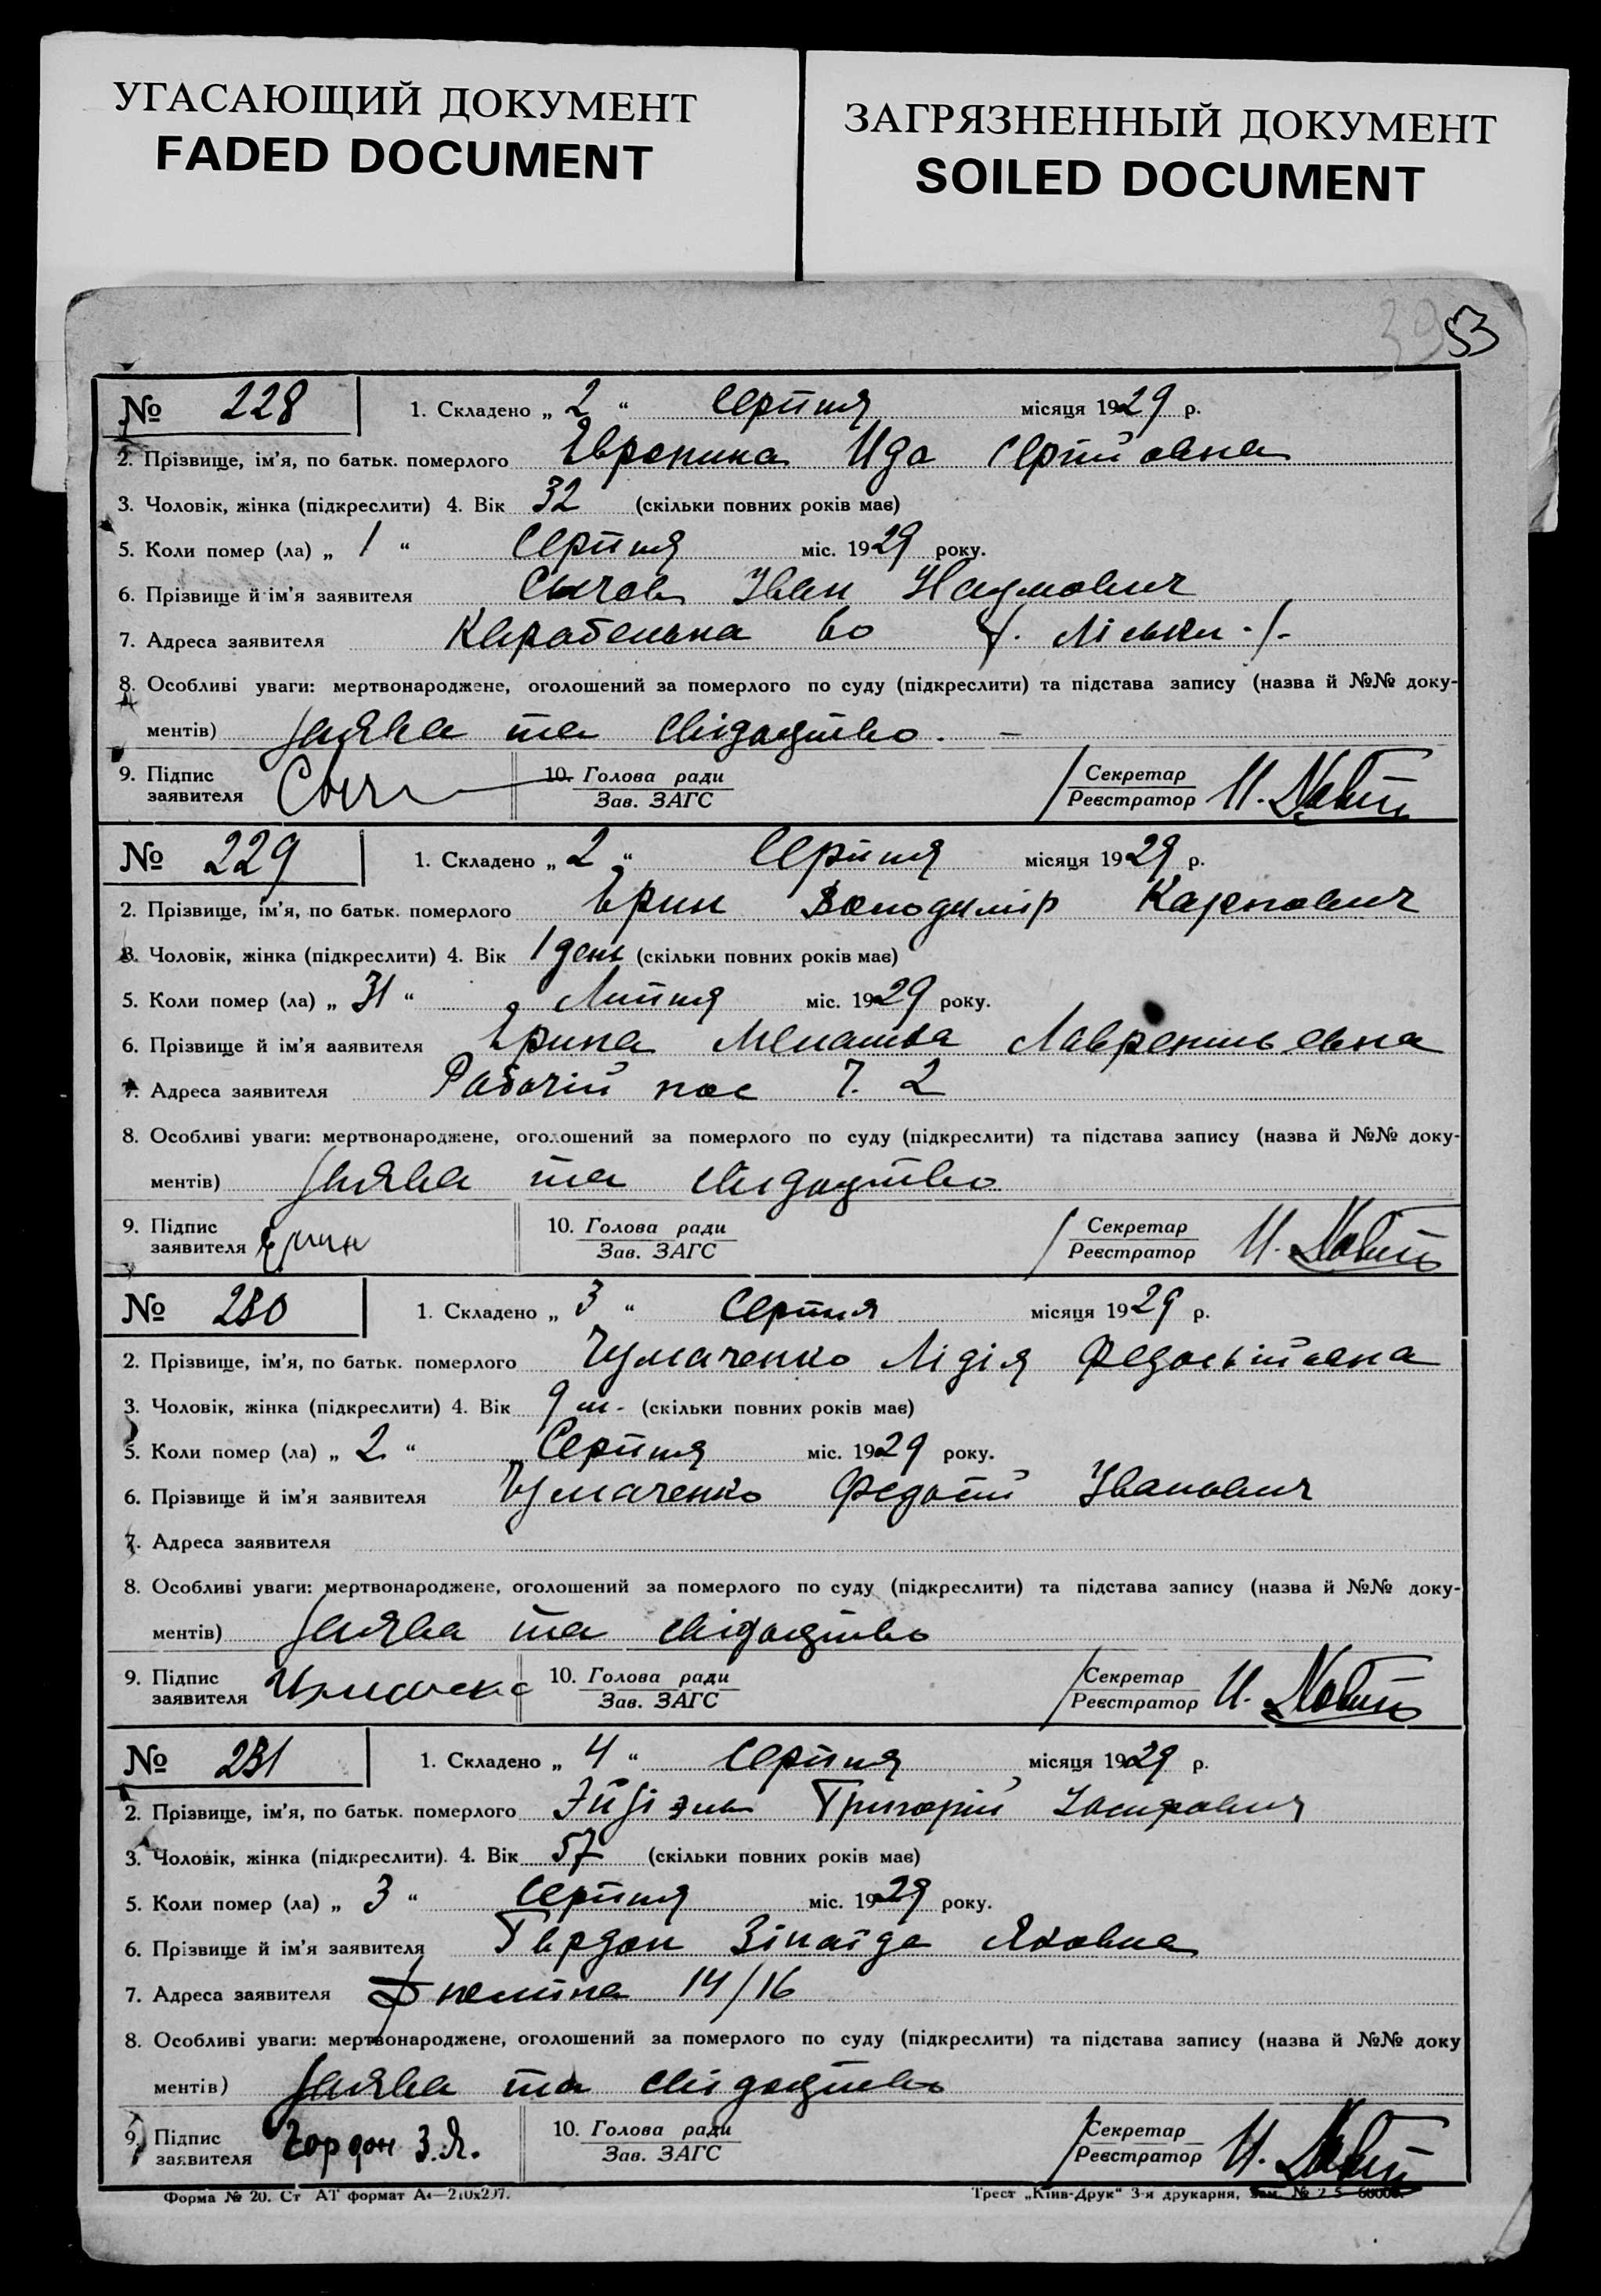 УГАСАЮЩИЙ ДОКУМЕНТ
FADED DOCUMENT
ЗАГРЯЗНЕННЫЙ ДОКУМЕНТ
SOILED DOCUMENT
39 53
№ 228 1. Складено „ 2 “ Серпня місяця 1929 р.
2. Прізвище, ім'я, по батьк. померлого Ида
3. Чоловік, жінка (підкреслити) 4. Вік 32 (скільки повних років має)
5. Коли помер (ла) „ 1 “ Серпня міс. 1929 року.
6. Прізвище й ім'я заявителя Сычев Іван Наумович
7. Адреса заявителя
8. Особливі уваги: мертвонароджене, оголошений за померлого по суду (підкреслити) та підстава запису (назва й №№ доку-
ментів) Заява та свідоцтво. –
9. Підпис заявителя Сыч 10. Голова ради Зав. ЗАГС Секретар Реєстратор
№ 229 1. Складено „ 2 “ Серпня місяця 1929 р.
2. Прізвище, ім'я, по батьк. померлого Ерин Володимір Карпович
3. Чоловік, жінка (підкреслити) 4. Вік 1 день (скільки повних років має)
5. Коли помер (ла) „ 31 “ Липня міс. 1929 року.
6. Прізвище й ім'я заявителя Ерина
7. Адреса заявителя Рабочій пос 7. 2
8. Особливі уваги: мертвонароджене, оголошений за померлого по суду (підкреслити) та підстава запису (назва й №№ доку-
ментів) Заява та свідоцтво
9. Підпис заявителя Ерин 10. Голова ради Зав. ЗАГС Секретар Реєстратор
№ 230 1. Складено „ 3 “ Серпня місяця 1929 р.
2. Прізвище, ім'я, по батьк. померлого Чумаченко Лідія
3. Чоловік, жінка (підкреслити) 4. Вік 9 м. (скільки повних років має)
5. Коли помер (ла) „ 2 “ Серпня міс. 1929 року.
6. Прізвище й ім'я заявителя Чумаченко Федотій Іванович
7. Адреса заявителя
8. Особливі уваги: мертвонароджене, оголошений за померлого по суду (підкреслити) та підстава запису (назва й №№ доку-
ментів) Заява та свідоцтво
9. Підпис заявителя 10. Голова ради Зав. ЗАГС Секретар Реєстратор
№ 231 1. Складено „ 4 “ Серпня місяця 1929 р.
2. Прізвище, ім'я, по батьк. померлого Григорій
3. Чоловік, жінка (підкреслити). 4. Вік 57 (скільки повних років має)
5. Коли помер (ла) „ 3 “ Серпня міс. 1929 року.
6. Прізвище й ім'я заявителя Гордон Зінаїда Яковна
7. Адреса заявителя 14/16
8. Особливі уваги: мертвонароджене, оголошений за померлого по суду (підкреслити) та підстава запису (назва й №№ доку
ментів) Заява та свідоцтво
9. Підпис заявителя Гордон З.Я. 10. Голова ради Зав. ЗАГС Секретар Реєстратор
Форма № 20. Ст АТ формат А4—210х297. Трест „Київ-Друк“ 3-я друкарня,